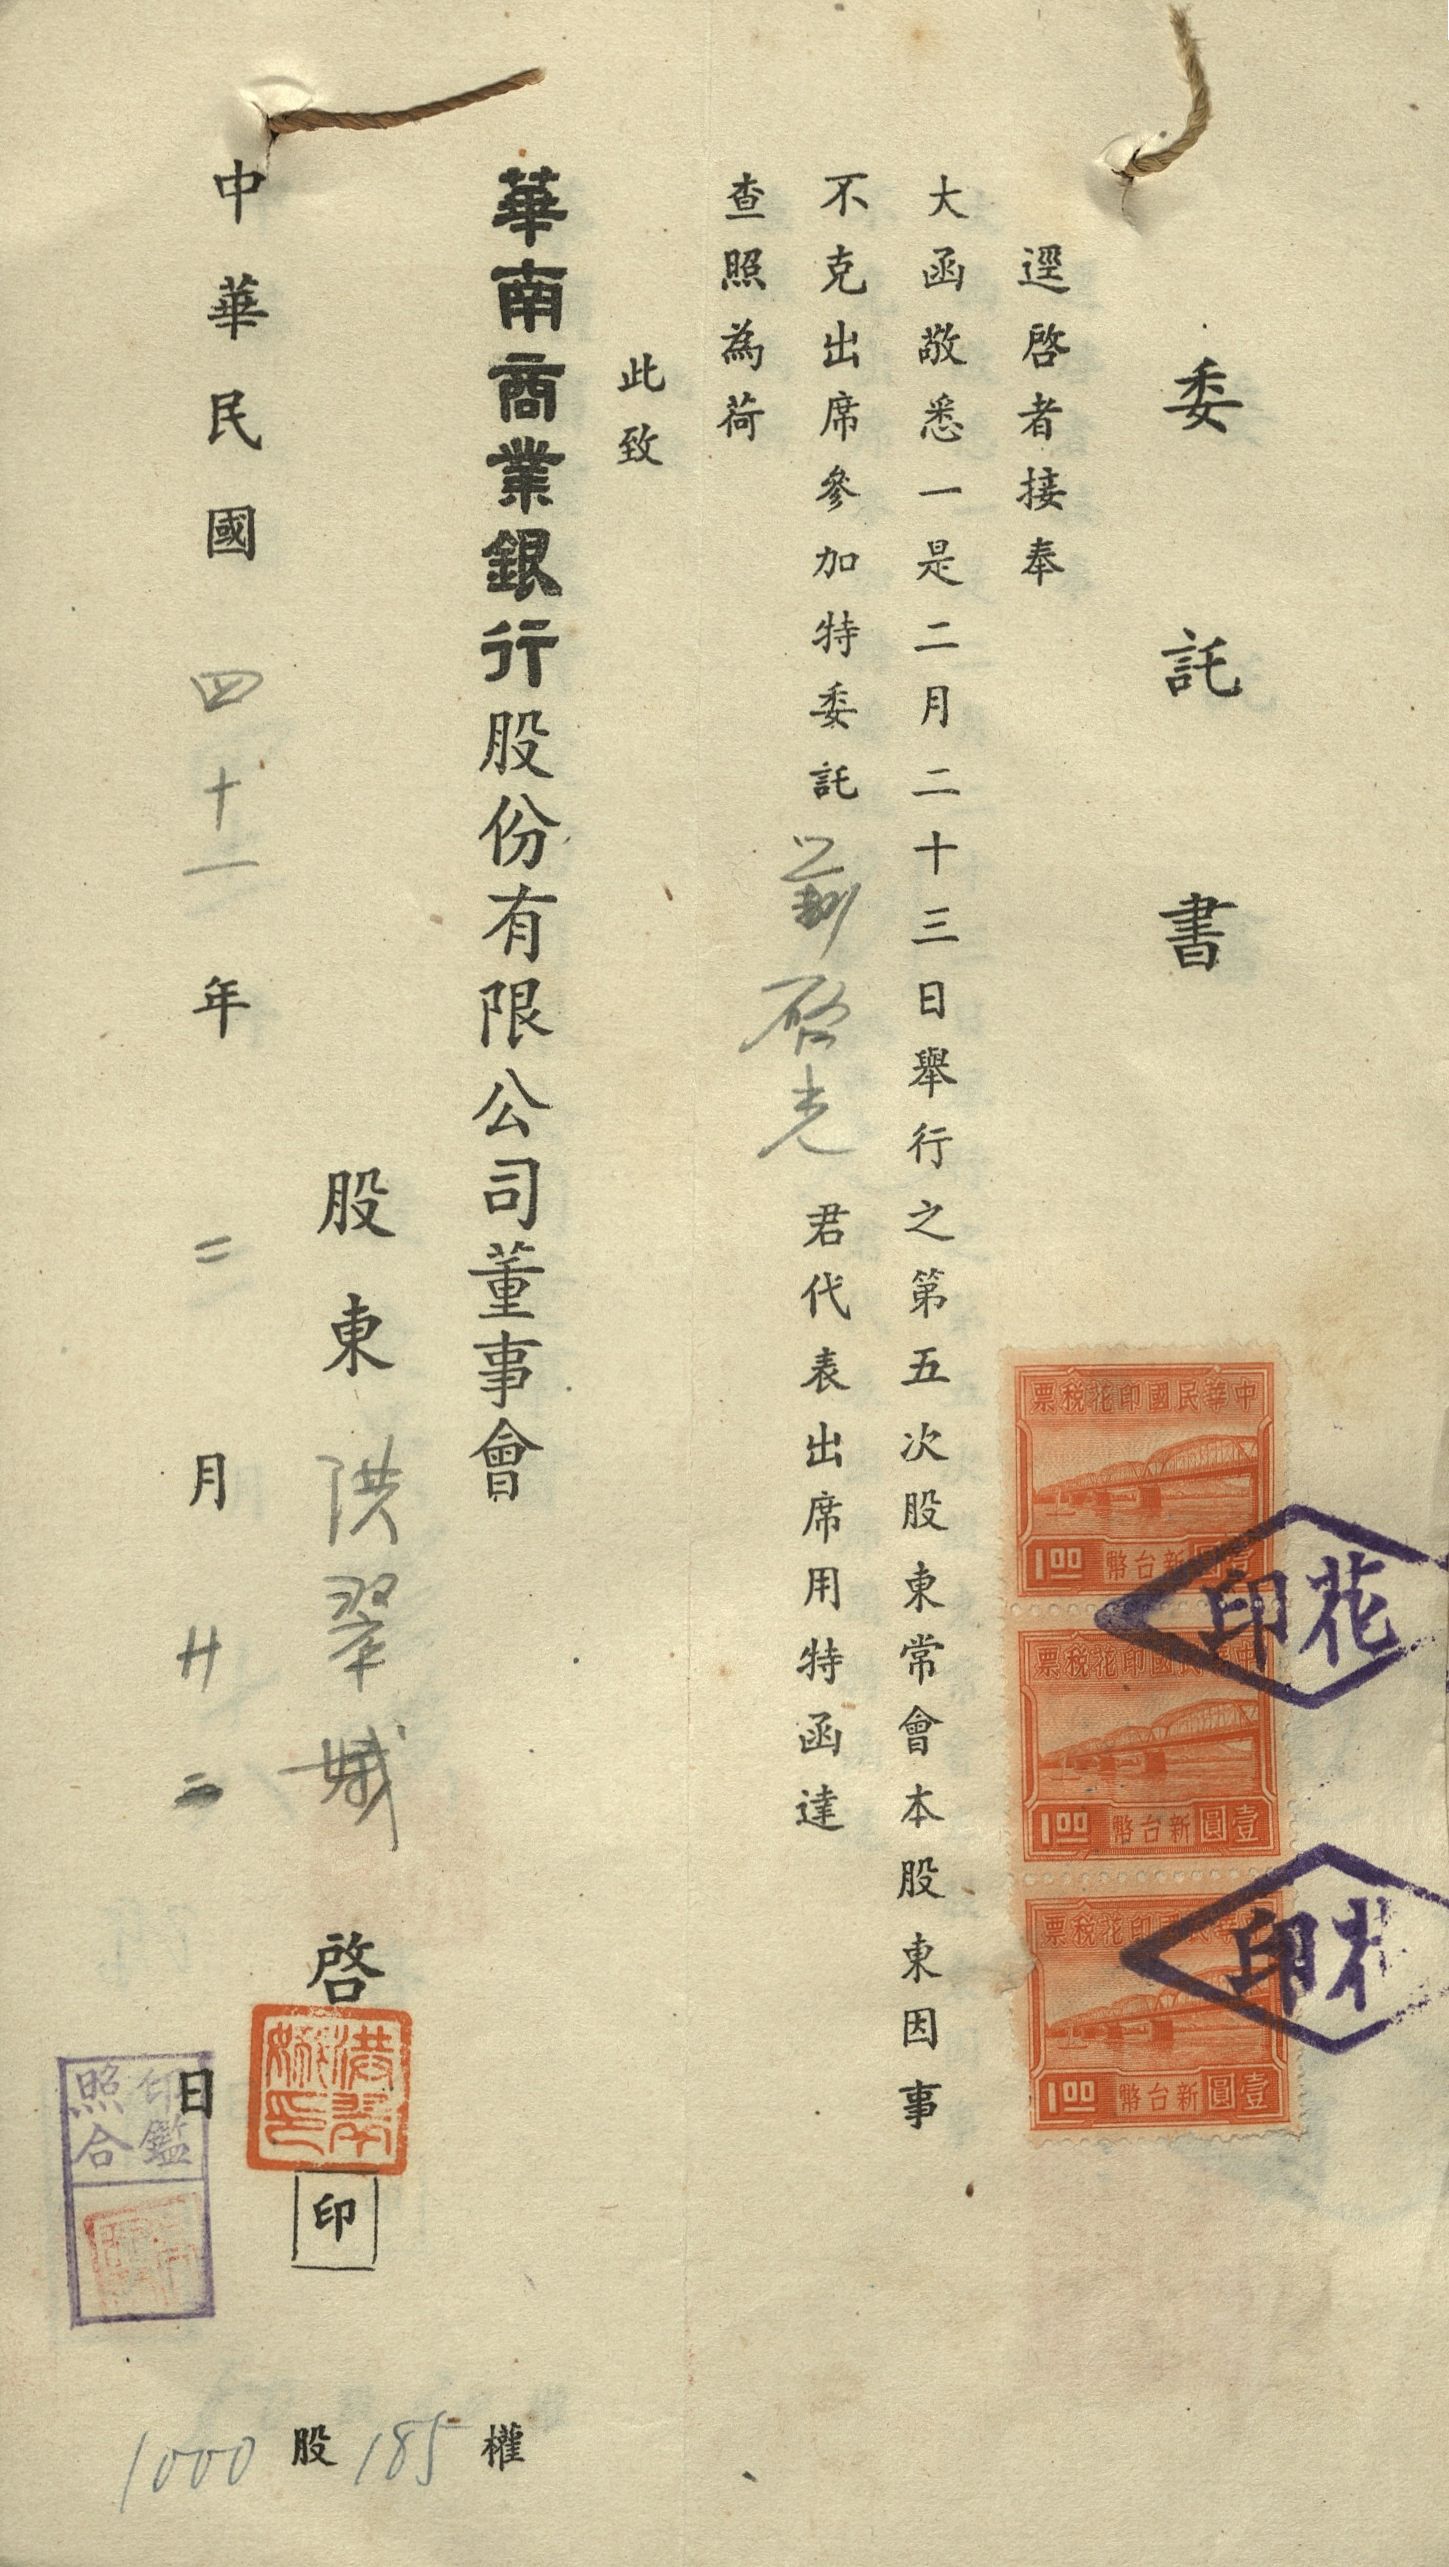 委託書
逕啓者接奉
大函敬悉一是二月二十三日舉行之第五次股東常會本股東因事
不克出席參加特委託劉啓光君代表出席用特函達
查照為荷
此致
華南商業銀行股份有限公司董事會
股東洪翠娥啓
印
中華民國四十一年二月廿二日
1000股185權
中華民國印花稅票
1.00 新台幣壹圓
中華民國印花稅票
1.00 新台幣壹圓
中華民國印花稅票
1.00 新台幣壹圓
印花
印花
洪翠娥印
印鑑
照合